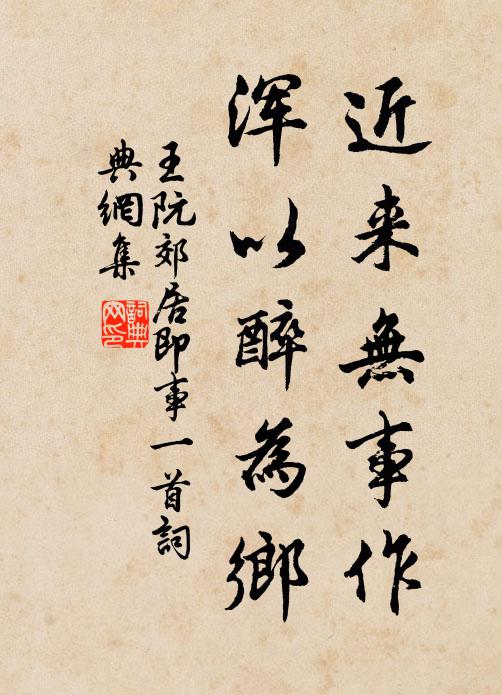 近来無事作
渾以醉為鄉
王阮郊居即事一首詞
典網集
詞典
网印